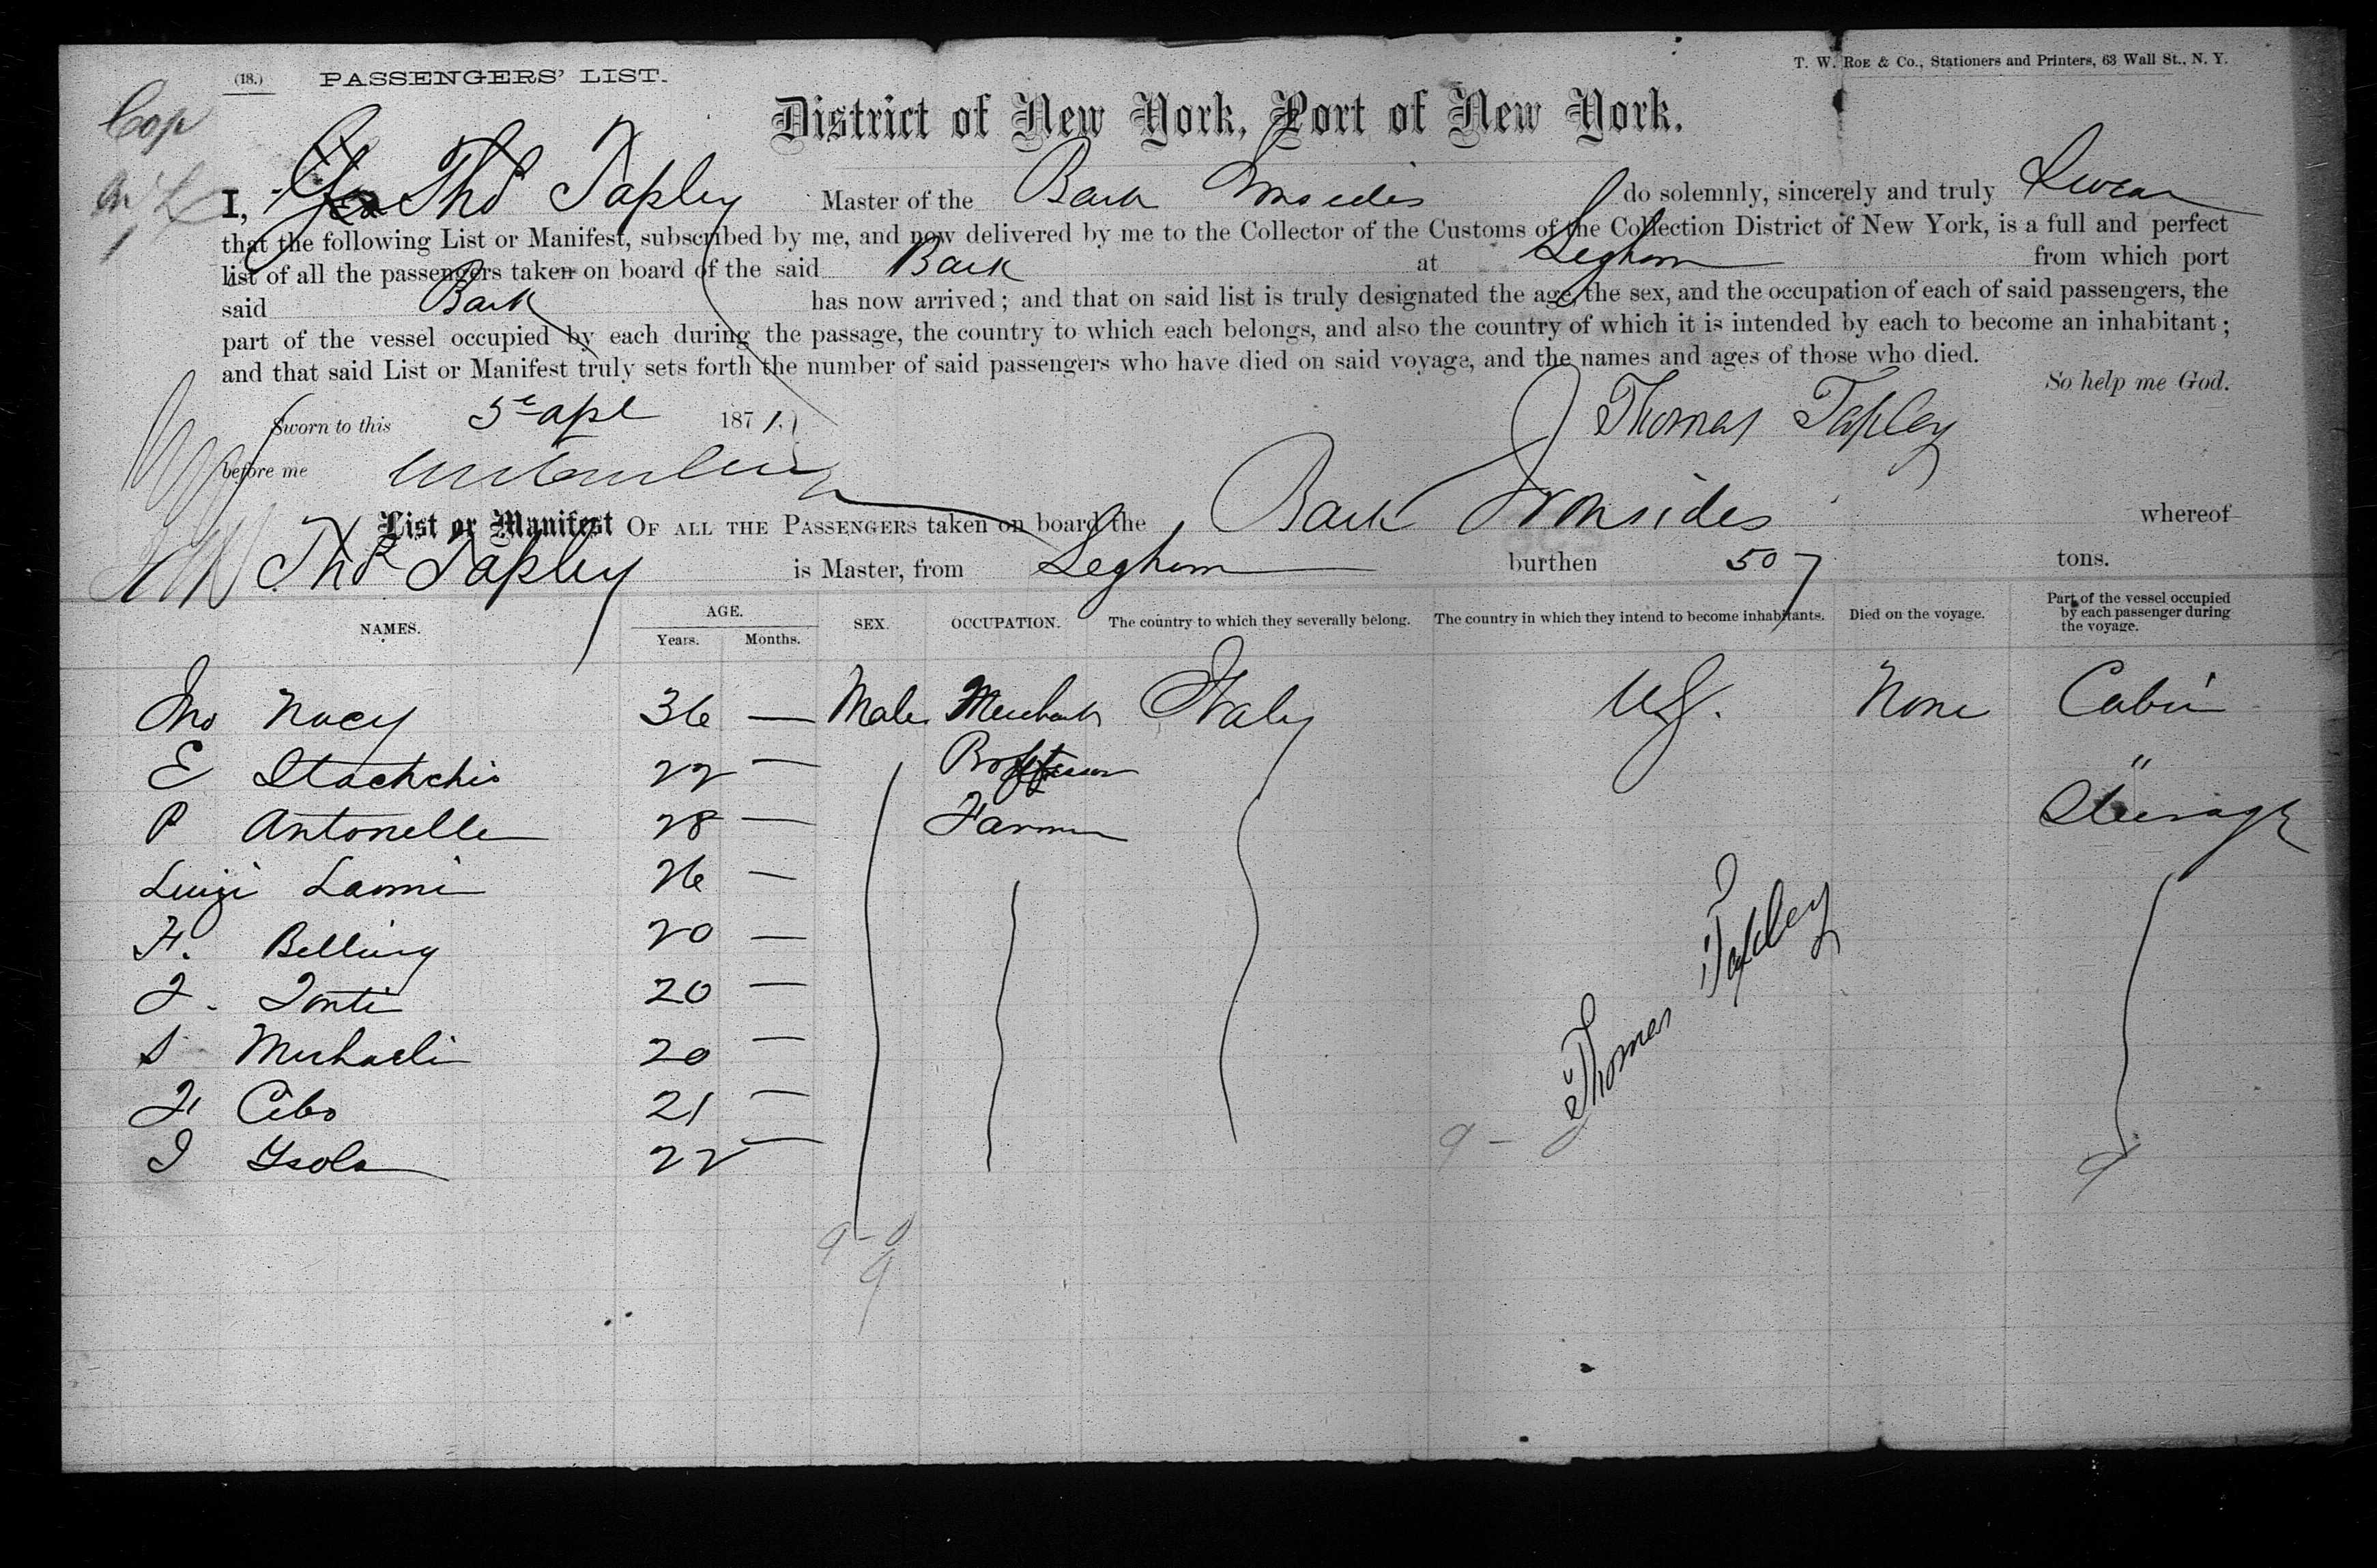 (18.) PASSENGERS' LIST.
T. W. ROE & Co., Stationers and Printers, 63 Wall St., N. Y.
Cop
District of New York, Port of New York.
I, Thos Tapley Master of the Bark Ironsides do solemnly, sincerely and truly Swear
that the following List or Manifest, subscribed by me, and now delivered by me to the Collector of the Customs of the Collection District of New York, is a full and perfect
list of all the passengers taken on board of the said Bark at Leghorn from which port
said Bark has now arrived; and that on said list is truly designated the age, the sex, and the occupation of each of said passengers, the
part of the vessel occupied by each during the passage, the country to which each belongs, and also the country of which it is intended by each to become an inhabitant;
and that said List or Manifest truly sets forth the number of said passengers who have died on said voyage, and the names and ages of those who died.
So help me God.
Sworn to this 5e apl 1871.
Thomas Tapley
before me
List or Manifest OF ALL THE PASSENGERS taken on board the Bark Ironsides whereof
Thos Tapley is Master, from Leghorn burthen 507 tons.
NAMES. AGE. Years. Months. SEX. OCCUPATION. The country to which they severally belong. The country in which they intend to become inhabitants. Died on the voyage. Part of the vessel occupied by each passenger during the voyage.
Jno Nacy 36 — Male Merchant Italy U.S. None Cabin
E Stachchio 22 — Proffessor "
P Antonelle 28 — Farmer Steerage
Luigi Laomi 26 —
F. Belling 20 —
J. Tonti 20 —
S Michaeli 20 —
F Cebo 21 —
I Ysola 22 —
Thomas Tapley
9 -
9
9 - 0
9